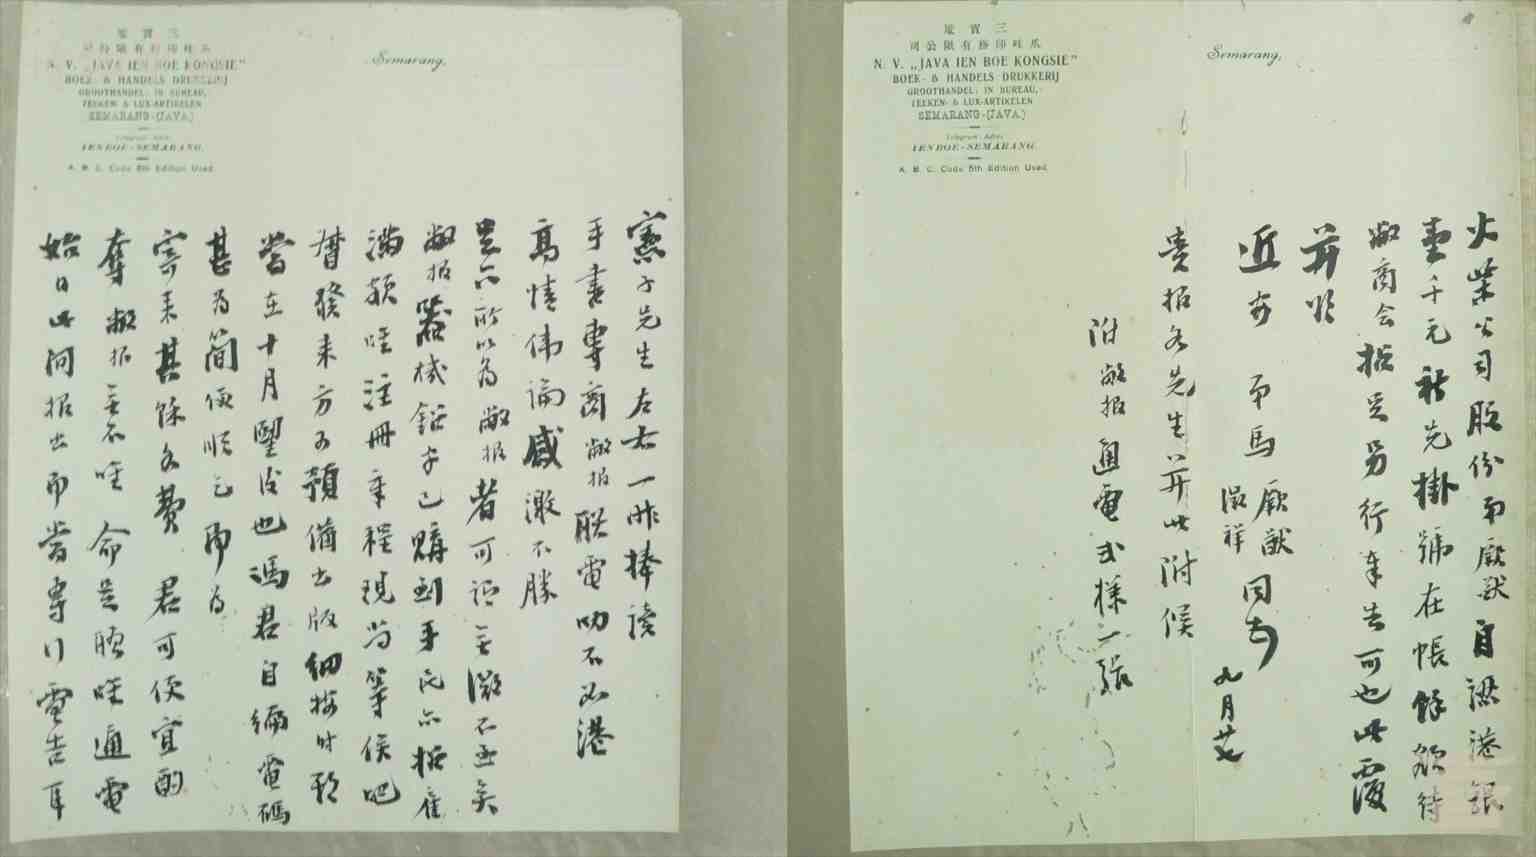 三寶壟
爪哇印務有限公司
N. V. „JAVA IEN BOE KONGSIE"
BOEK- & HANDELS DRUKKERIJ
GROOTHANDEL: IN BUREAU,
TEEKEN- & LUX-ARTIKELEN
SEMARANG-(JAVA)
Telegram Adres
IENBOE-SEMARANG.
A. B. C. Code 5th Edition Used.
Semarang,
憲子先生左右一昨捧讀
手書專商敝报联電叻不必港
高情偉論感激不勝
里亦所以為敝报者可謂無微不至矣
敝报器械鉛字已購到手民亦招雇
滿額唯注冊章程現尚等候吧
督發來方可預備出版細按时期
當在十月望後也馮君自編電碼
甚為簡便順乞即為
寄来其餘各費 君可便宜酌
奪敝报無不唯命是聽唯通電
始日此间报出即當專门電告耳
三寶壟
爪哇印務有限公司
N. V. „JAVA IEN BOE KONGSIE"
BOEK- & HANDELS DRUKKERIJ
GROOTHANDEL: IN BUREAU,
TEEKEN- & LUX-ARTIKELEN
SEMARANG-(JAVA)
Telegram Adres
IENBOE-SEMARANG.
A. B. C. Code 5th Edition Used.
Semarang,
火柴公司股份弟厥猷自認港銀
壹千元祈先掛號在帳餘額待
敝商会招足另行奉告可也此覆
并頌
近安 弟馬厥猷
澂祥
同启
九月廿七
貴报各先生并此附候
附敝报通電式樣一張